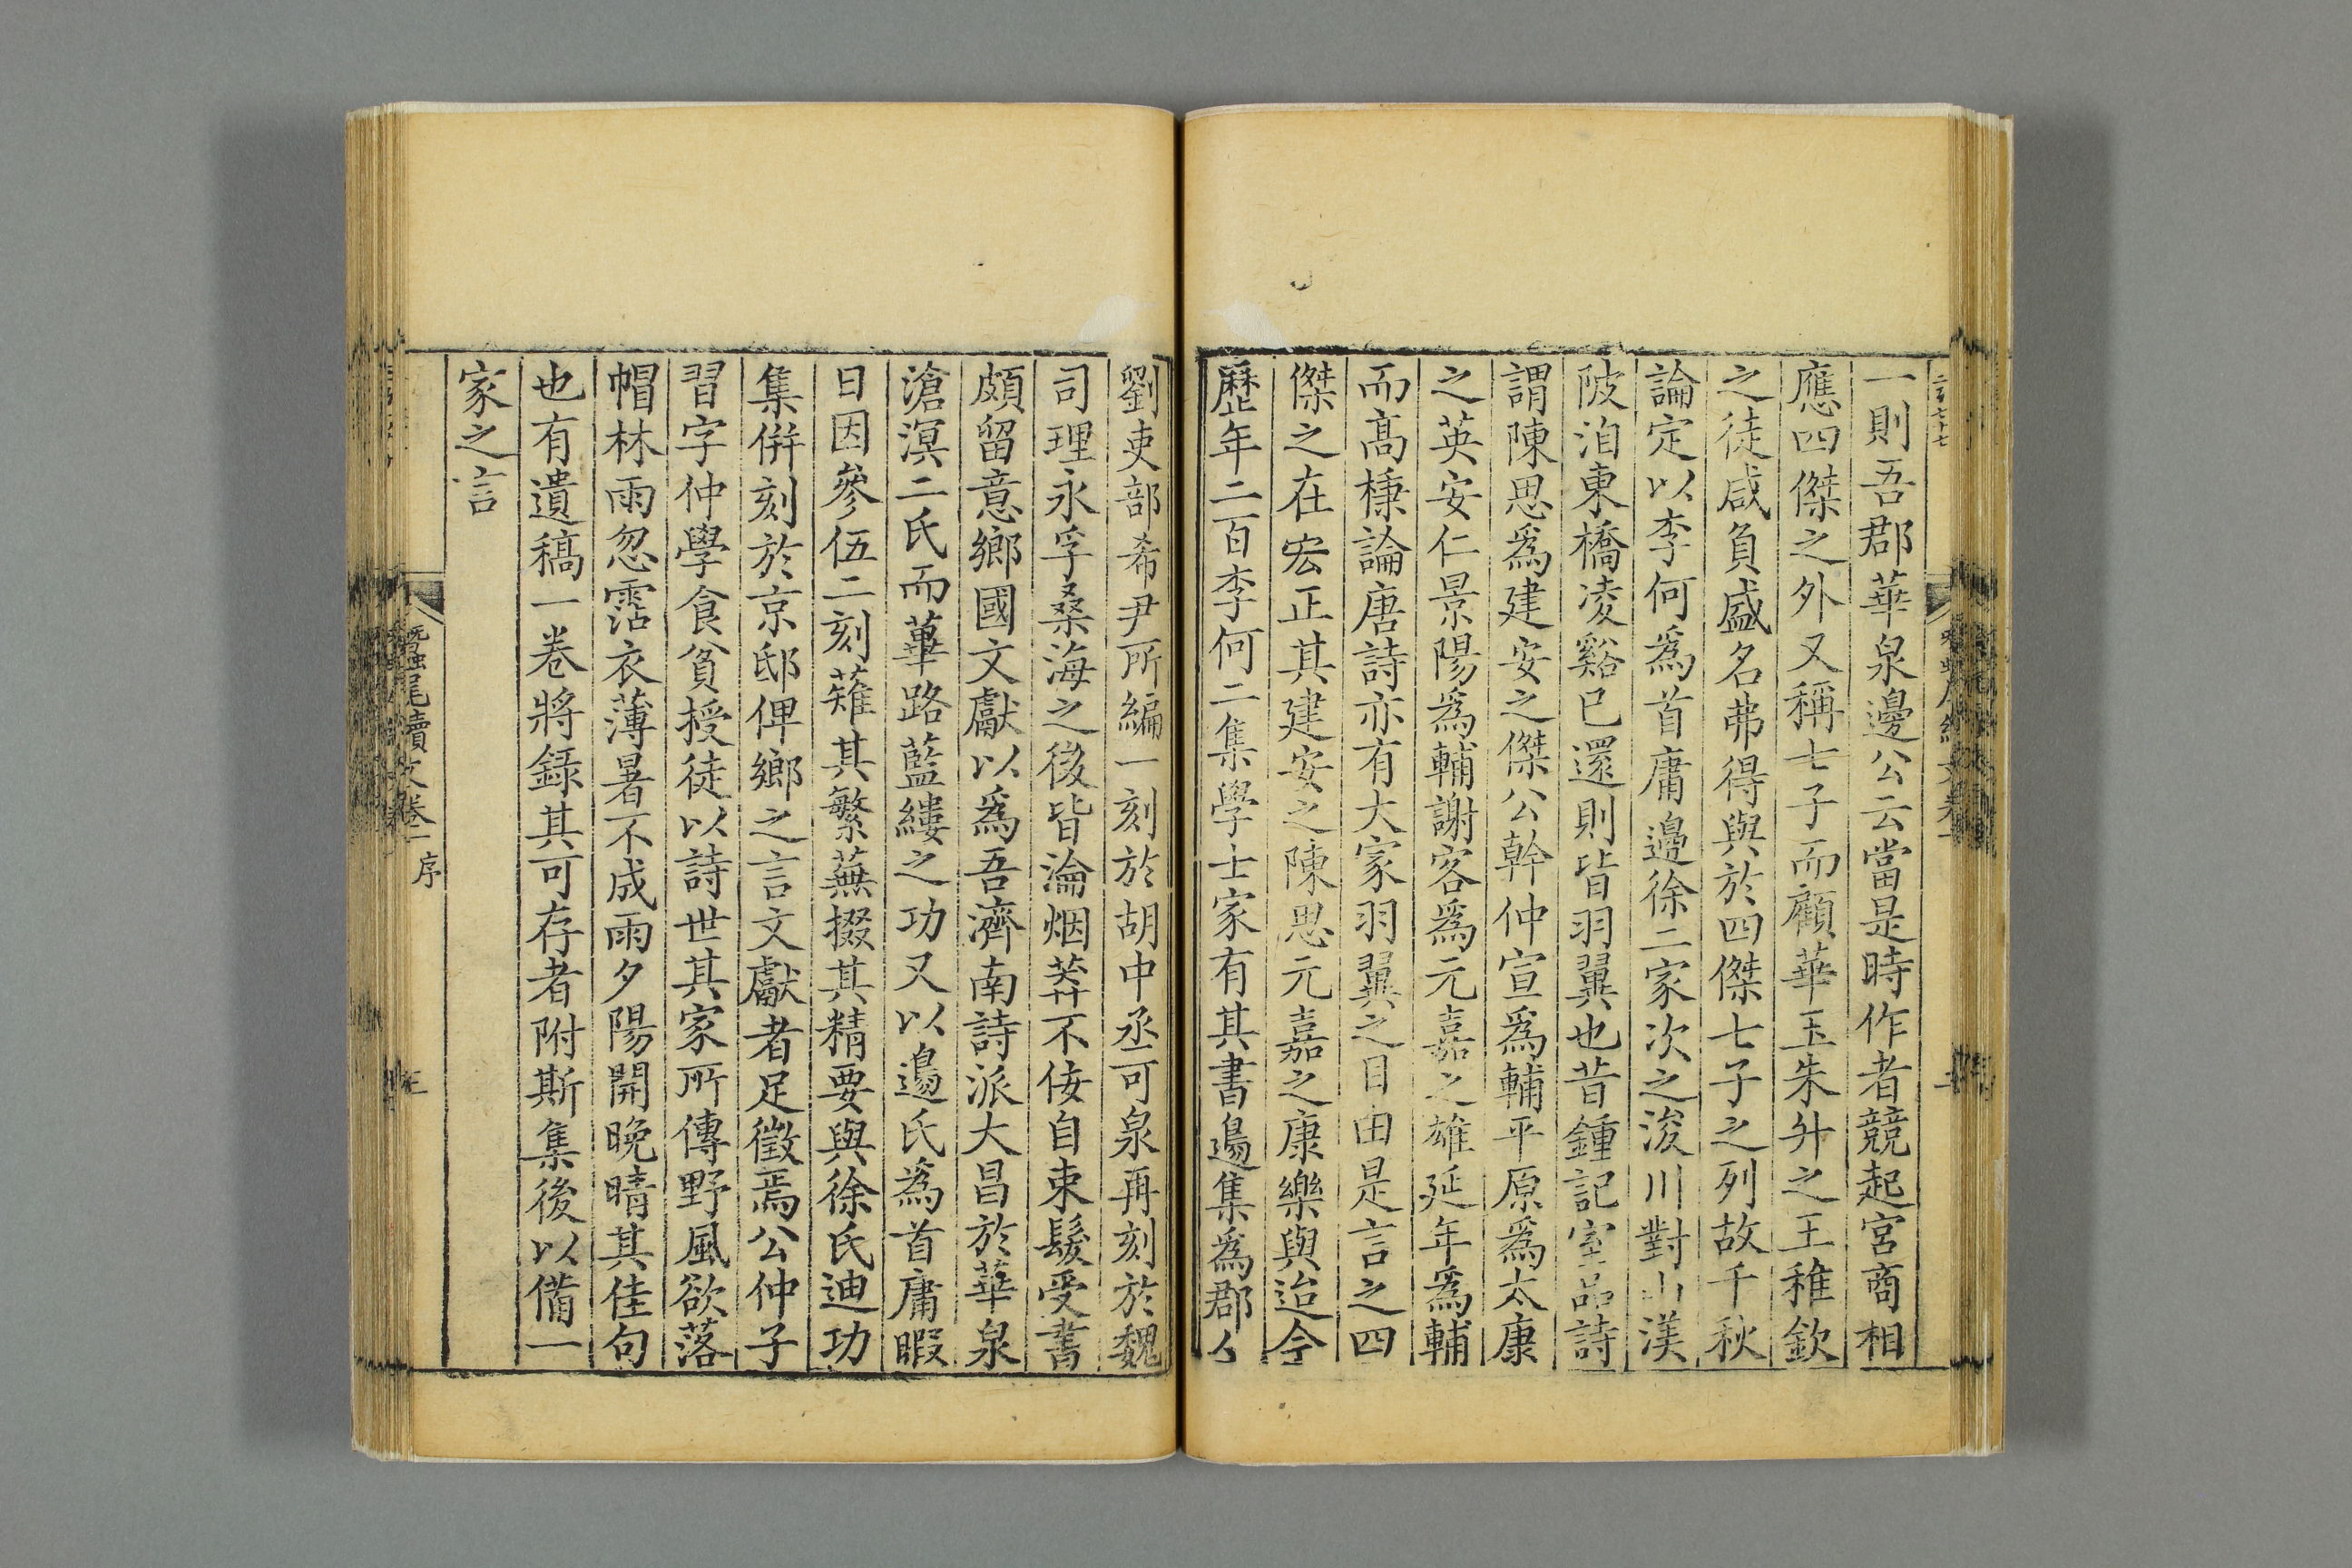 一則吾郡華泉邊公云當是時作者競起宮商相
應四傑之外又稱七子而顧華玉朱升之王稚欽
之徒咸負盛名弗得與於四傑七子之列故千秋
論定以李何爲首庸邊徐二家次之浚川對山渼
陂洎東橋凌谿已還則皆羽翼也昔鍾記室品詩
謂陳思爲建安之傑公幹仲宣爲輔平原爲太康
之英安仁景陽爲輔謝客爲元嘉之雄延年爲輔
而高棅論唐詩亦有大家羽翼之目由是言之四
傑之在宏正其建安之陳思元嘉之康樂與迨今
歷年二百李何二集學士家有其書邊集爲郡人
劉吏部希尹所編一刻於胡中丞可泉再刻於魏
司理永孚桑海之後皆淪烟莽不佞自束髮受書
頗留意鄉國文獻以爲吾濟南詩派大昌於華泉
滄溟二氏而蓽路藍縷之功又以邊氏爲首庸暇
日因參伍二刻薙其繁蕪掇其精要與徐氏迪功
集倂刻於京邸俾鄉之言文獻者足徵焉公仲子
習字仲學食貧授徒以詩世其家所傳野風欲落
帽林雨忽霑衣薄暑不成雨夕陽開晚晴其佳句
也有遺稿一卷將錄其可存者附斯集後以備一
家之言
蠶尾續文卷一 序